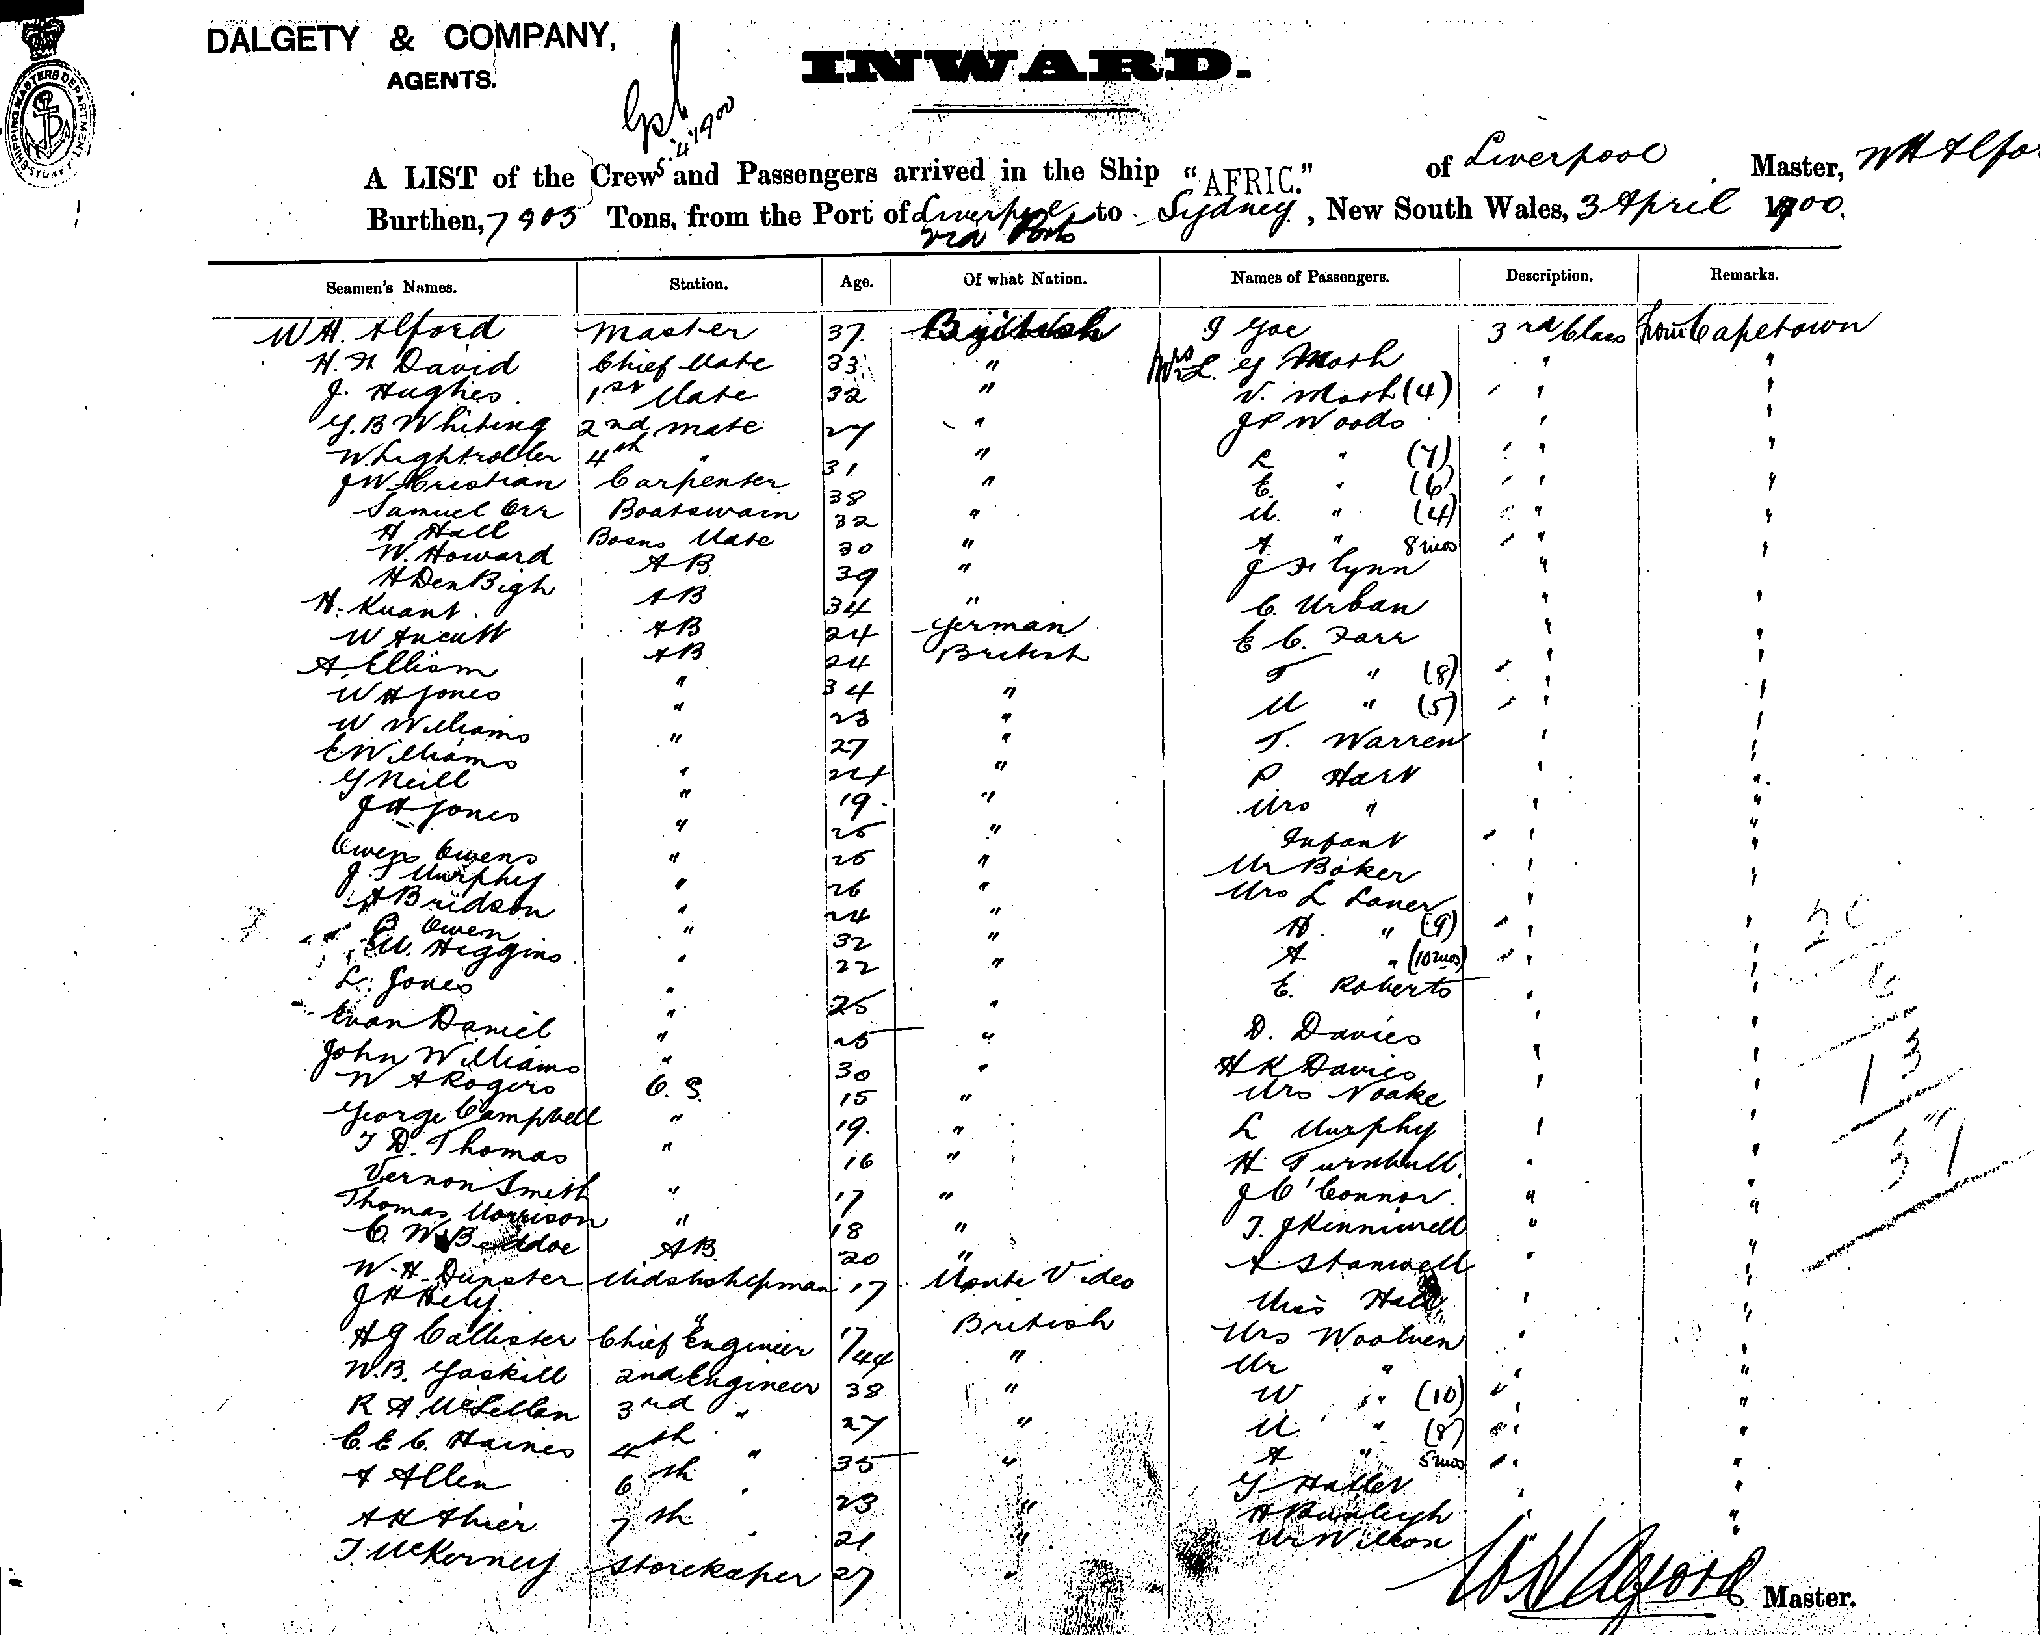 DALGETY & COMPANY,
AGENTS.
INWARD.
SHIPPING MASTERS DEPARTMENT
SYDNEY
5/4/1900
A LIST of the Crews and Passengers arrived in the Ship "AFRIC." of Liverpool Master, W H Alford
Burthen, 7903 Tons, from the Port of Liverpool to Sydney, New South Wales, 3 April 1900.
via Ports
Seamen's Names. Station. Age. Of what Nation. Names of Passengers. Description. Remarks.
W H. Alford Master 37 British J Goe 3rd Class from Capetown
H. F. David Chief Mate 33 " Mrs L. G Mosh " "
J. Hughes 1st Mate 32 " V. Mosh (4) " " "
G. B Whiting 2nd Mate 27 " J P Woods " "
W Lightroller 4th " 31 " R " (7) " " "
J W Cristian Carpenter 38 " E. " (6) " " "
Samuel Orr Boatswain 32 " M. " (4) " " "
H Hall Bosns Mate 30 " A " 8 mos " " "
W. Howard A B 39 " J Flynn " "
H DenBigh A B 34 " C. Urban " "
H. Knant A B 24 German E C. Farr " "
W Ancutt A B 24 British T " (8) " " "
A. Ellism " 34 " M " (5) " " "
W H Jones " 23 " T. Warren " "
W Williams " 27 " P Hart " "
E Williams " 24 " Mrs " " "
G Neill " 19 " Infant " " "
J H Jones " 25 " Mr Baker " "
Owen Owens " 25 " Mrs L Laner " "
J. S Murphy " 26 " H. " (9) " " "
A Bridson " 24 " A " (10 mos) " " "
B Owen " 32 " E. Roberts " "
W. Higgins " 22 " D. Davies " "
L. Jones " 25 " H R Davies " "
Evan Daniel " 25 " Mrs Noake " "
John Williams " 30 " L Murphy " "
W A Rogers O. S. 15 " H Turnbull " "
George Campbell " 19 " J O'Connor " "
T D. Thomas " 16 " T. J Kenniwell " "
Vernon Smith " 17 " A Stanwell " "
Thomas Morrison " 18 " Miss Hall " "
C. W. Beddoe A B 20 " Mrs Woolven " "
W. H. Dunster Midshipman 17 Monte Video Mr " " "
J H Hely " 17 British W " (10) " " "
H J Callister Chief Engineer 44 " M. " (8) " " "
W. B. Gaskill 2nd Engineer 38 " A " 5 mos " " "
R A McLellan 3rd " 27 " G Haller " "
C. E C. Haines 4th " 35 " H Burleigh "
A Allen 6th " 23 " Mr Wilson "
A H Ahier 7th " 21 "
T. McKerney Storekeeper 27 "
20
6
13
39
W H Alford Master.